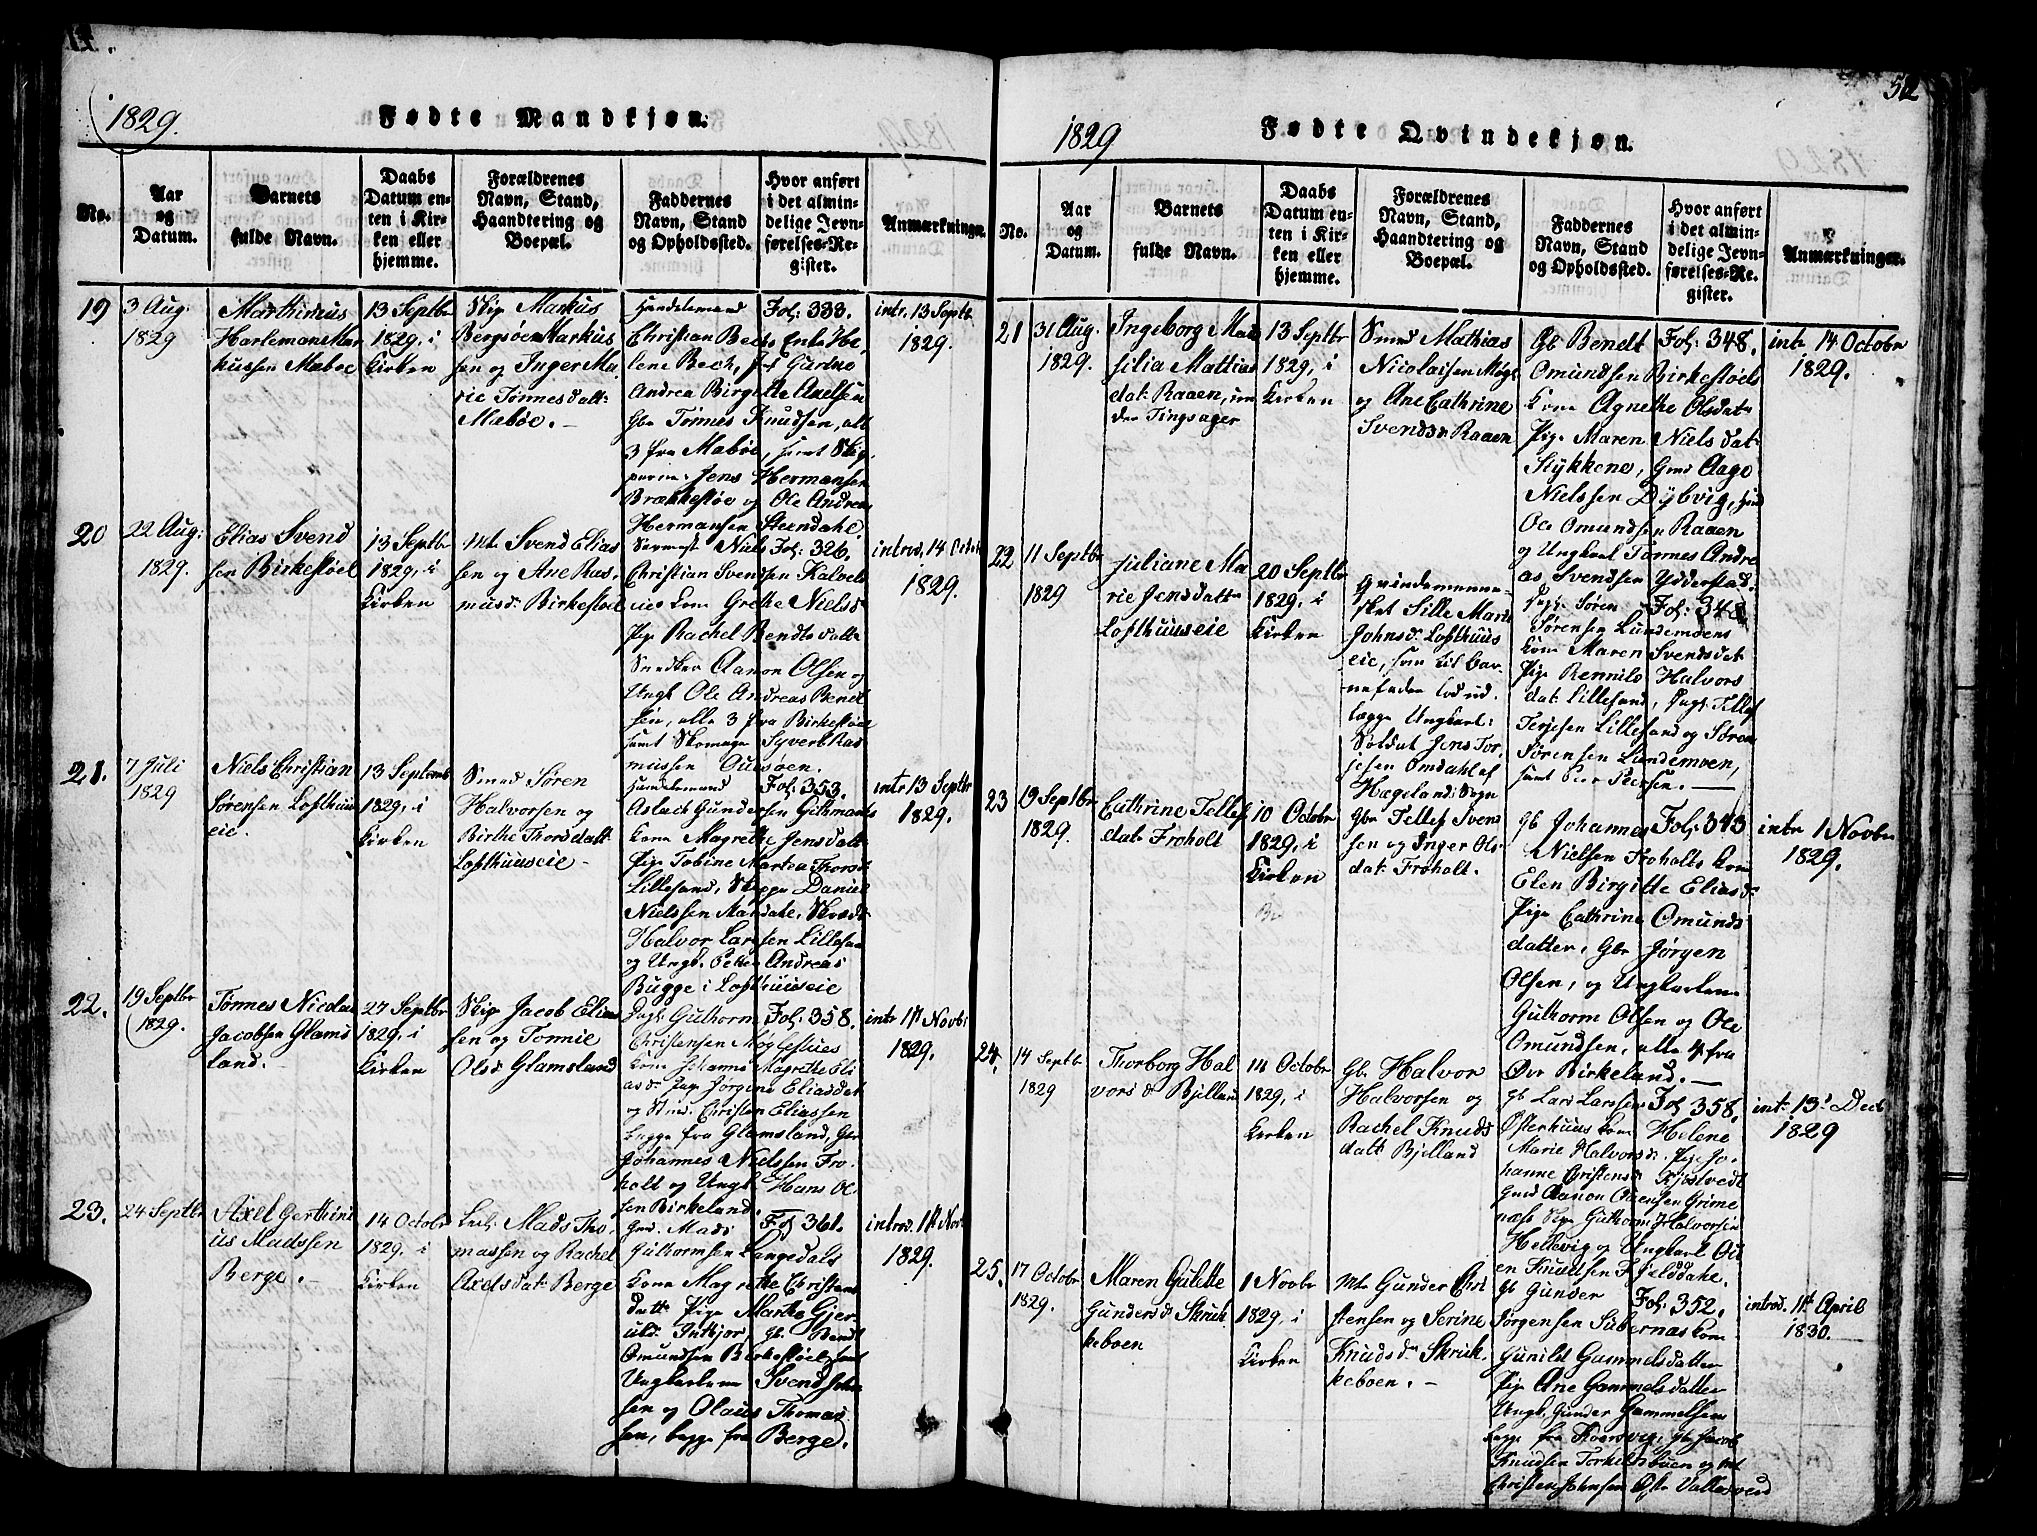 1829.
Fødte Mandkjøn.
No.
Aar
og
Datum.
Barnets
fulde Navn.
Daabs
Datum en-
ten i Kir-
ken eller
hjemme.
Forældrenes
Navn, Stand,
Haandtering og
Boepæl.
Faddernes
Navn, Stand
og Opholdssted.
Hvor anført
i det almin-
delige Jevn-
førelses-Re-
gister.
Anmærkninger.
19
3 Aug.
1829
Marthinius
Harlemane Mar
kussen Mæbøe
13 Septbr
1829, i
Kirken
Skip Markus
Bergsøen Markus
sen og Inger Ma
rie Tønnesdatt:
Mæbøe. —
Handelsmand
Christian Bechs Enke He,
lene Bech,
Andrea Birgette Axelsen
Gbr Tønnes Knudsen, alle
3 fra Mæbøe, samt Skip
perne Jens Hermansen
Brækkestøe og Ole Andreas
Hermansen Steendahl.
Fol: 388.
intr. 13 Septb.
1829.
20
22 Aug:
1829.
Elias Svend
sen Birkestøel
13 Septbr
1829, i
Kirken
Mt. Svend Elias
sen og Ane Ras
musd. Birkestøel
Niels
Christian Svendsen Kalveha
Kone Grethe Nielsd
Pige Rachel Bendtsdatt.
Snedker Aanon Olsen og
Ungk Ole Andreas Bendt
sen, alle 3 fra Birkestøel
samt Skomager Syvert Ras
mussen
Fol: 326.
introd. 14 Octob
1829.
21.
7 Juli
1829
Niels Christian
Sørensen Lofthuus
eie.
13 Septemb
1829, i
Kirken
Smed Søren
Halvorsen og
Birthe Thorsdatt
Lofthuuseie —
Handelsmand
Aslach Gundersen Githmarks
Kone Magrethe Jensdatt
Pige Tobine Martea Thorsd
Lillesand, Skipper Daniel
Nielssen Mandahl, Skræd
Halvor Larssen Lillesan
og Ungk. Petter Andreas
Bugge i Lofthuuseie
Fol: 353.
intr 13 Septbr
1829.
22.
19 Septbr
1829.
Tønnes Nicolai
Jacobsen Glams
land.
27 Septbr
1829, i
Kirken
Skip Jacob Elias
sen og Tonnie
Olsd Glamsland
Guthorm
Christensen Møglestues
Kone Johanne Magrethe Eli
asd. Pige Jørgine Eliasdat
og Smed. Christen Eliassen
begge fra Glamsland, Gbr
Johannes Nielssen Fro-
holt og Ungk Hans Ol
sen Birkeland.
Fol: 358.
intr 1st Novb:
1829.
23.
24 Septbr
Axel Gerthini
us Madssen
Berge. —
14 Octobr
1829. i
Kirken
Mads Tho,
massen og Rachel
Axelsdat: Berge
Gmd. Mads
Guthormsen Langedals
Kone Magrethe Christens
datt Pige Marthe Gjer-
uld. Gbr. Bendt
Omundsen Birkestøel, samt
Ungkarlene Svend
sen og Olaus Thomas
sen, begge fra Berge.
Fol 361.
introd. 1st Novb
1829.
52
1829
Fødte Qvindekjøn.
No.
Aar
og
Datum.
Barnets
fulde Navn.
Daabs
Datum en-
ten i Kir-
ken eller
hjemme.
Forældrenes
Navn, Stand,
Haandtering og
Boepæl.
Faddernes
Navn, Stand
og Opholdssted.
Hvor anført
i det almin-
delige Jevn-
førelses-Re-
gister.
Anmærkninger.
21
31 Aug.
1829.
Ingeborg Mar
silia Mattias
dat. Raaen, un
der Tingsager
13 Septbr
1829, i
Kirken
Smed Mathias
Nicolaisen Møgl
og Ane Cathrine
Svendsd. Raaen
Gb Bendt
Omundsen Birkestøels
Kone Agnethe Olsdatr
Pige Maren Nielsdat:
Stykkene, Gmd Aage
Nielssen Dybvig,
Ole Omundsen Raaen
og Ungkarl Tønnes Andre
as Svendsen
Fol: 348.
intr 14 Octobr
1829.
22
11 Septbr
1829
Juliane Ma
rie Jensdatt
Lofthuuseie
20 Septbr
1829, i
Kirken
Qvindemenne-
sket Sille Marie
Johnsd. Lofthuus
eie, som til bar
nefader lod ud.
lægge Ungkarl:
Soldat Jens Tor,
jesen Omdahl af
Hægelands Sogn
Søren
Sørensen Lundemoens
Kone Maren Svendsdat
Pige Rennilo Halvors
dat: Lillesand, Tellef
Terjesen Lillesand og Søren
Sørensen Lundemoen,
samt Peer Peersen. —
Fol: 348
23
19 Septbr
1829.
Cathrine Tellefs
dat: Froholt
10 Octobr
1829, i
Kirken
Gbr Tellef Svens
sen og Inger Ols
dat: Froholt.
Gb Johannes
Nielsen Froholts Kone
Elen Birgitte Eliasd:
Pige Cathrine Omunds
datter, Gbr Jørgen
Olsen, og Ungkarlene
Guthorm Olsen og Ole
Omundsen, alle 4 fra
Øvr Birkeland. —
Fol: 343
intr 1 Novbr
1829.
24.
14 Septbr
1829
Thorborg Hal
vorsd Bjelland
11 Octobr
1829, i
Kirken
Gb. Halvor
Halvorsen og
Rachel Knuds
datt Bjelland
Gb Lars Larsen
Østerhuus Kone Helene
Marie Halvorsd. Pige Jo-
hanne Christensd. Kjøstvedt
Gmd Aanon Ouensen Grime
næs Skip Guthorm Halvorsen
Hellevig og Ungkarl Ou
en Knudsen Fjelddahl.
Fol 358,
intr: 13de Decb
1829
25.
17 Octobr
1829.
Maren Gulette
Gundersd Skruk
keboen
1 Novbr
1829, i
Kirken
Mt. Gunder Chri
stensen og Serine
Knudsd. Skruk.
keboen. —
Gb Gunder
Jørgensen Kone
Gunild Gammelsdatter
Pige Ane Gammelsdatter
Ungk. Gunder Gammelsen
begge fra Gb. Jacob
Knudsen Torkelsbuen og Mt
Christen Johnsen Østr Vallesverd
Fol: 352.
introd. 11te April
1830.